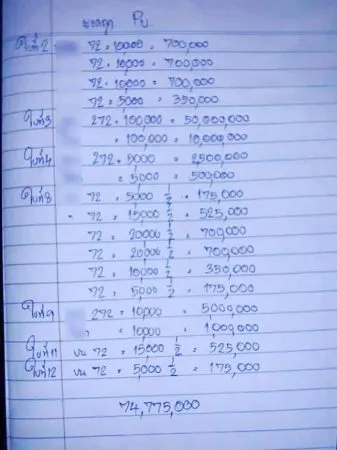 ใบที่2 72 = 10000 = 700,000
72 = 10000 = 700,000
72 = 10000 = 700,000
72 = 5000 = 350,000
ใบที่3 272 = 100,000 = 50,000,000
= 100,000 = 10,000,000
ใบที่4 272 = 5000 = 2500,000
= 5000 = 500,000
ใบที่8 72 = 5000 1/2 = 175,000
72 = 15000 1/2 = 525,000
72 = 20000 1/2 = 700,000
72 = 20000 1/2 = 700,000
72 = 10000 1/2 = 350,000
72 = 5000 1/2 = 175,000
ใบที่9 272 = 10000 = 5000,000
= 10000 = 1000,000
ใบที่11 บน 72 = 15000 1/2 = 525,000
ใบที่12 บน 72 = 5000 1/2 = 175,000
74,775,000